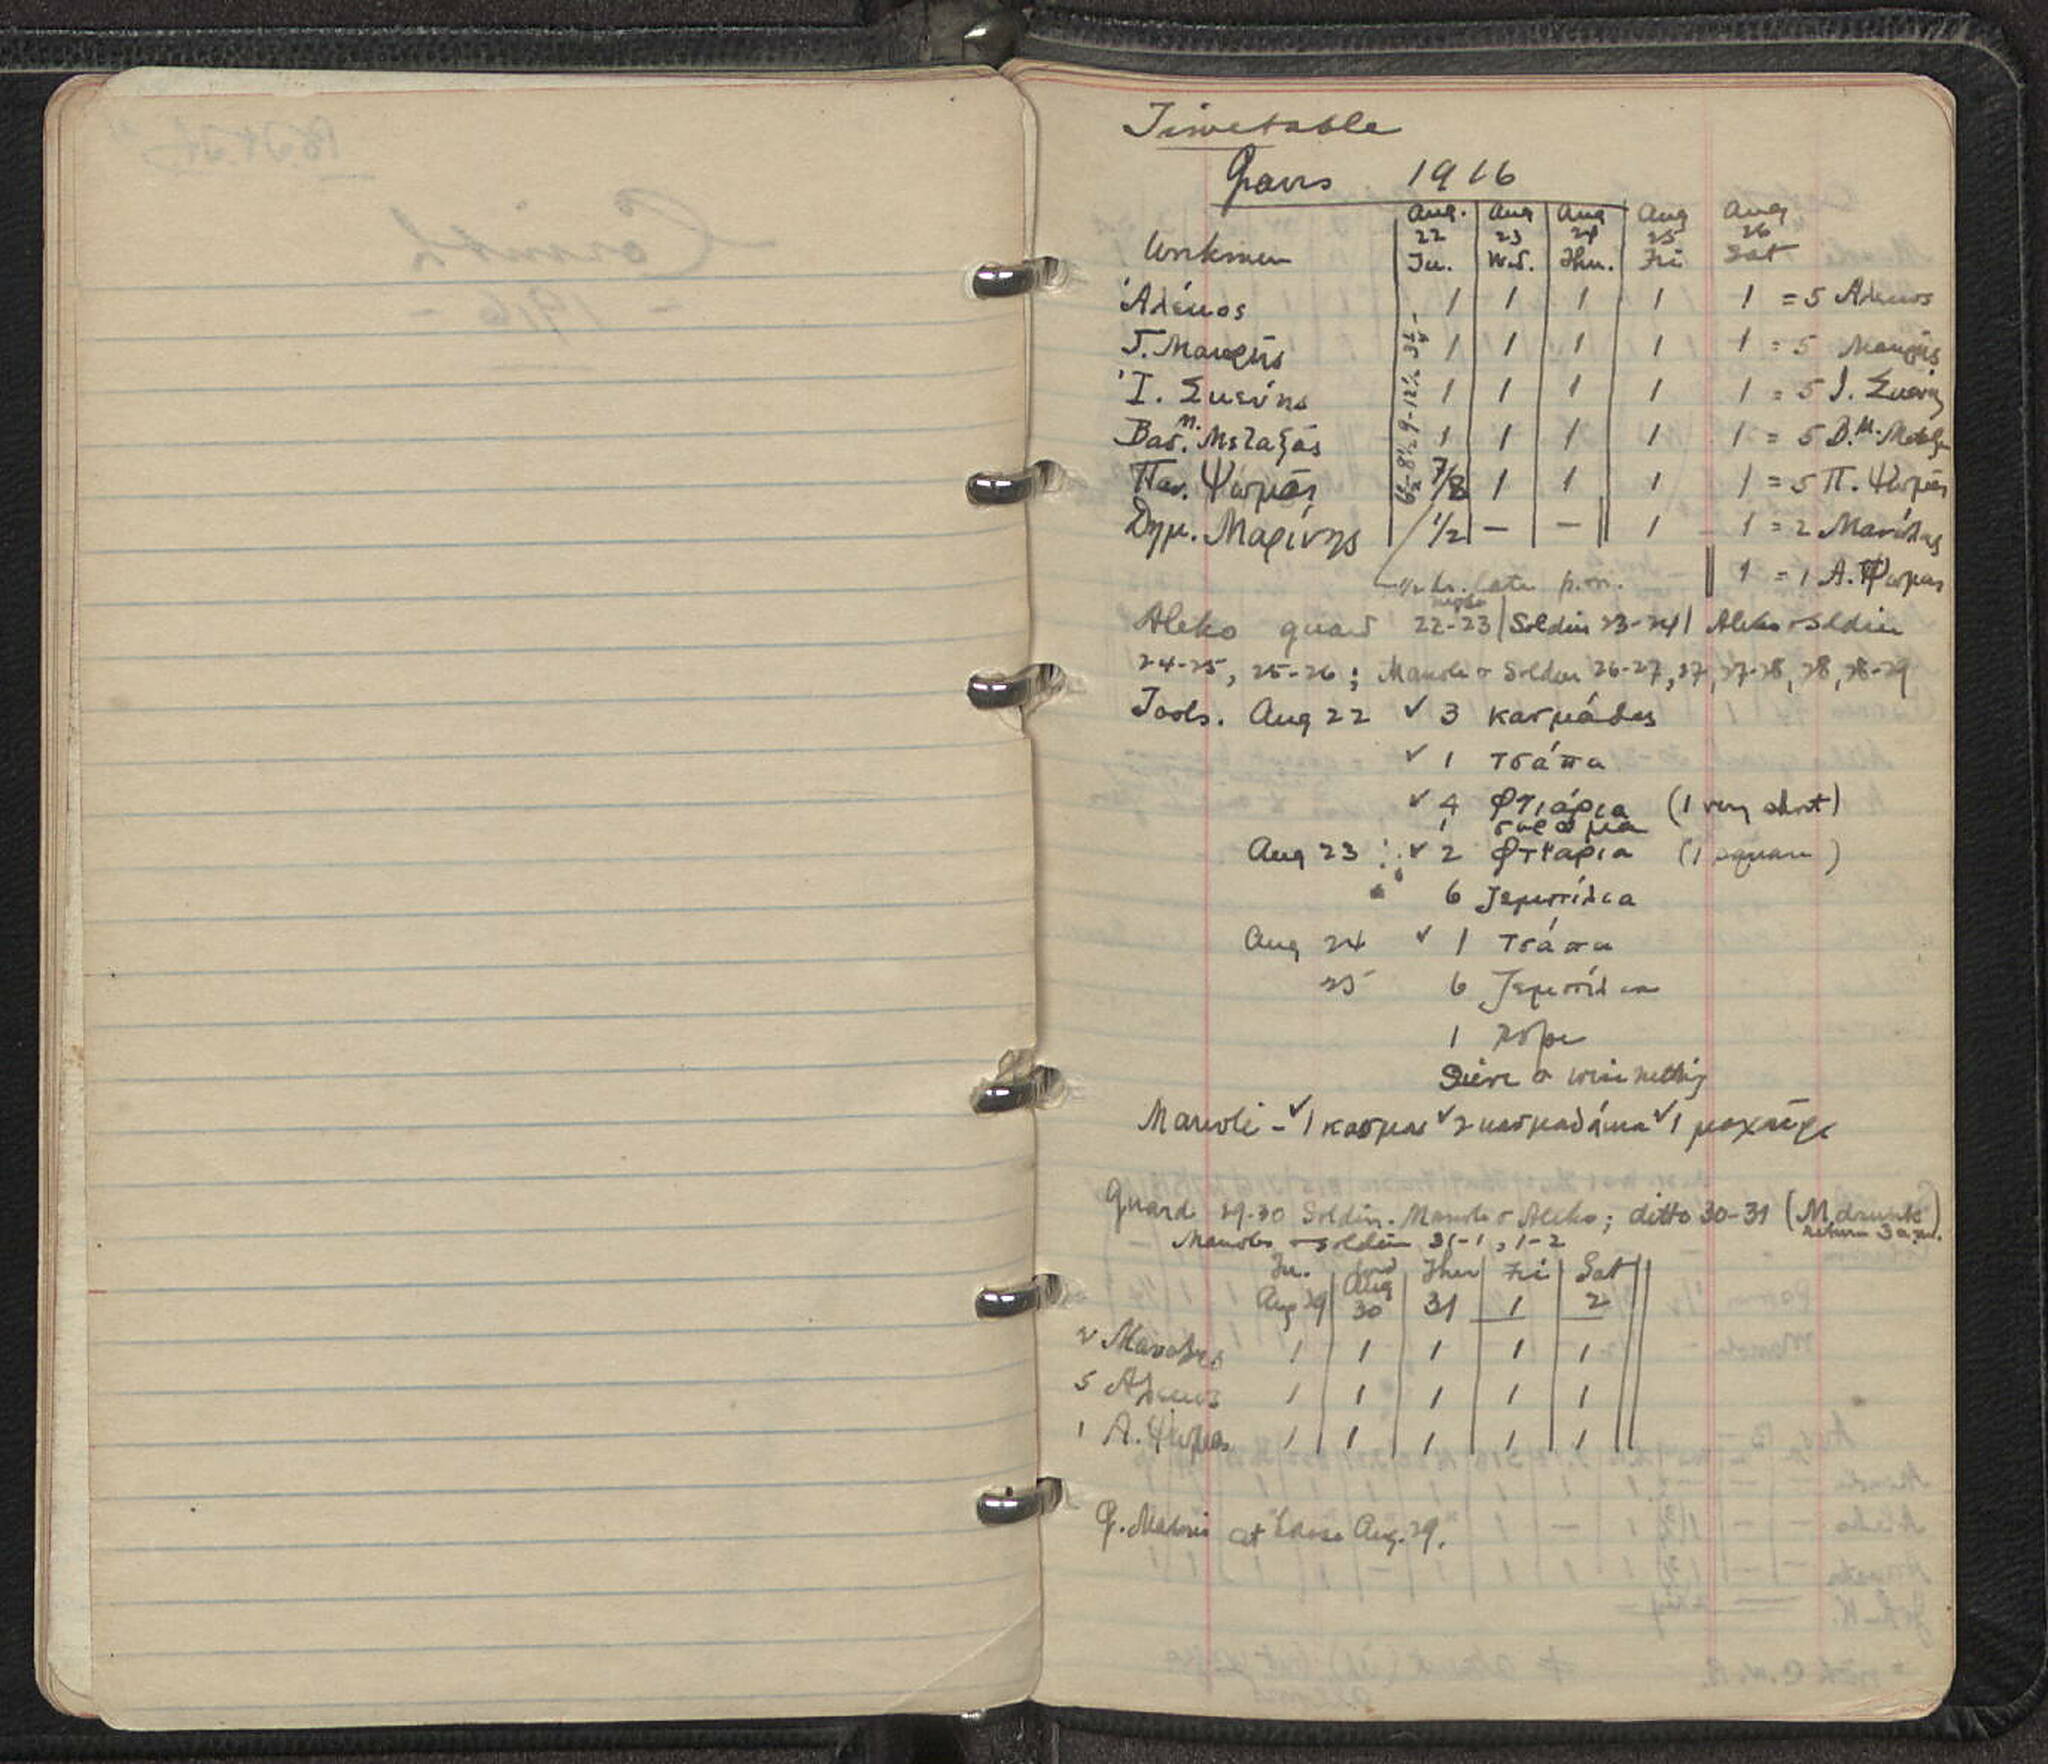 Timetable
1916
Workmen Aug. 22 Tu. Aug 23 Wed. Aug 24 Thu. Aug 25 Fri Aug 26 Sat
Ἀλέκος 1 1 1 1 1 = 5 Αλεκος
Γ. 1 1 1 1 1 = 5
Ἰ. 1 1 1 1 1 = 5 Ι.
Βασ. Μ. Μεταξᾶς 1 1 1 1 1 = 5 Β. Μ.
Παν. Ψωμᾶς 7/8 1 1 1 1 = 5 Π. Ψωμᾶς
Δημ. Μαρίνης 1/2 — — 1 1 = 2
6½-8½ 9-12½
1 = 1 Α. Ψωμας
½ hr. late p.m.
Aleko guard night 22-23 | Soldier 23-24 | Aleko + Soldier
24-25, 25-26; Manoli + Soldier 26-27, 27, 27-28, 28, 28-29
Tools. Aug 22 ✓ 3 κασμάδες
✓ 1 τσάπα
✓ 4 φτιάρια (1 very short)
1
Aug 23 ✓ 2 φτιαρια (1 square)
6 ζεμπίλια
Aug 24 ✓ 1 τσάπα
25 6 ζεμπίλια
1 rope
Sieve + wire netting
Manoli - ✓ 1 κασμας ✓ 2 κασμαδάκια ✓ 1 μαχαίρι
Guard 29-30 Soldier. Manoli + Aleko; ditto 30-31 (M drunk return 3 a.m.)
Manoles + soldier 31-1, 1-2
Tu. Aug 29 Wed Aug 30 Thur 31 Fri 1 Sat 2
2 1 1 1 1 1
5 Αλεκος 1 1 1 1 1
1 Α. Ψωμας 1 1 1 1 1
at house Aug. 29.